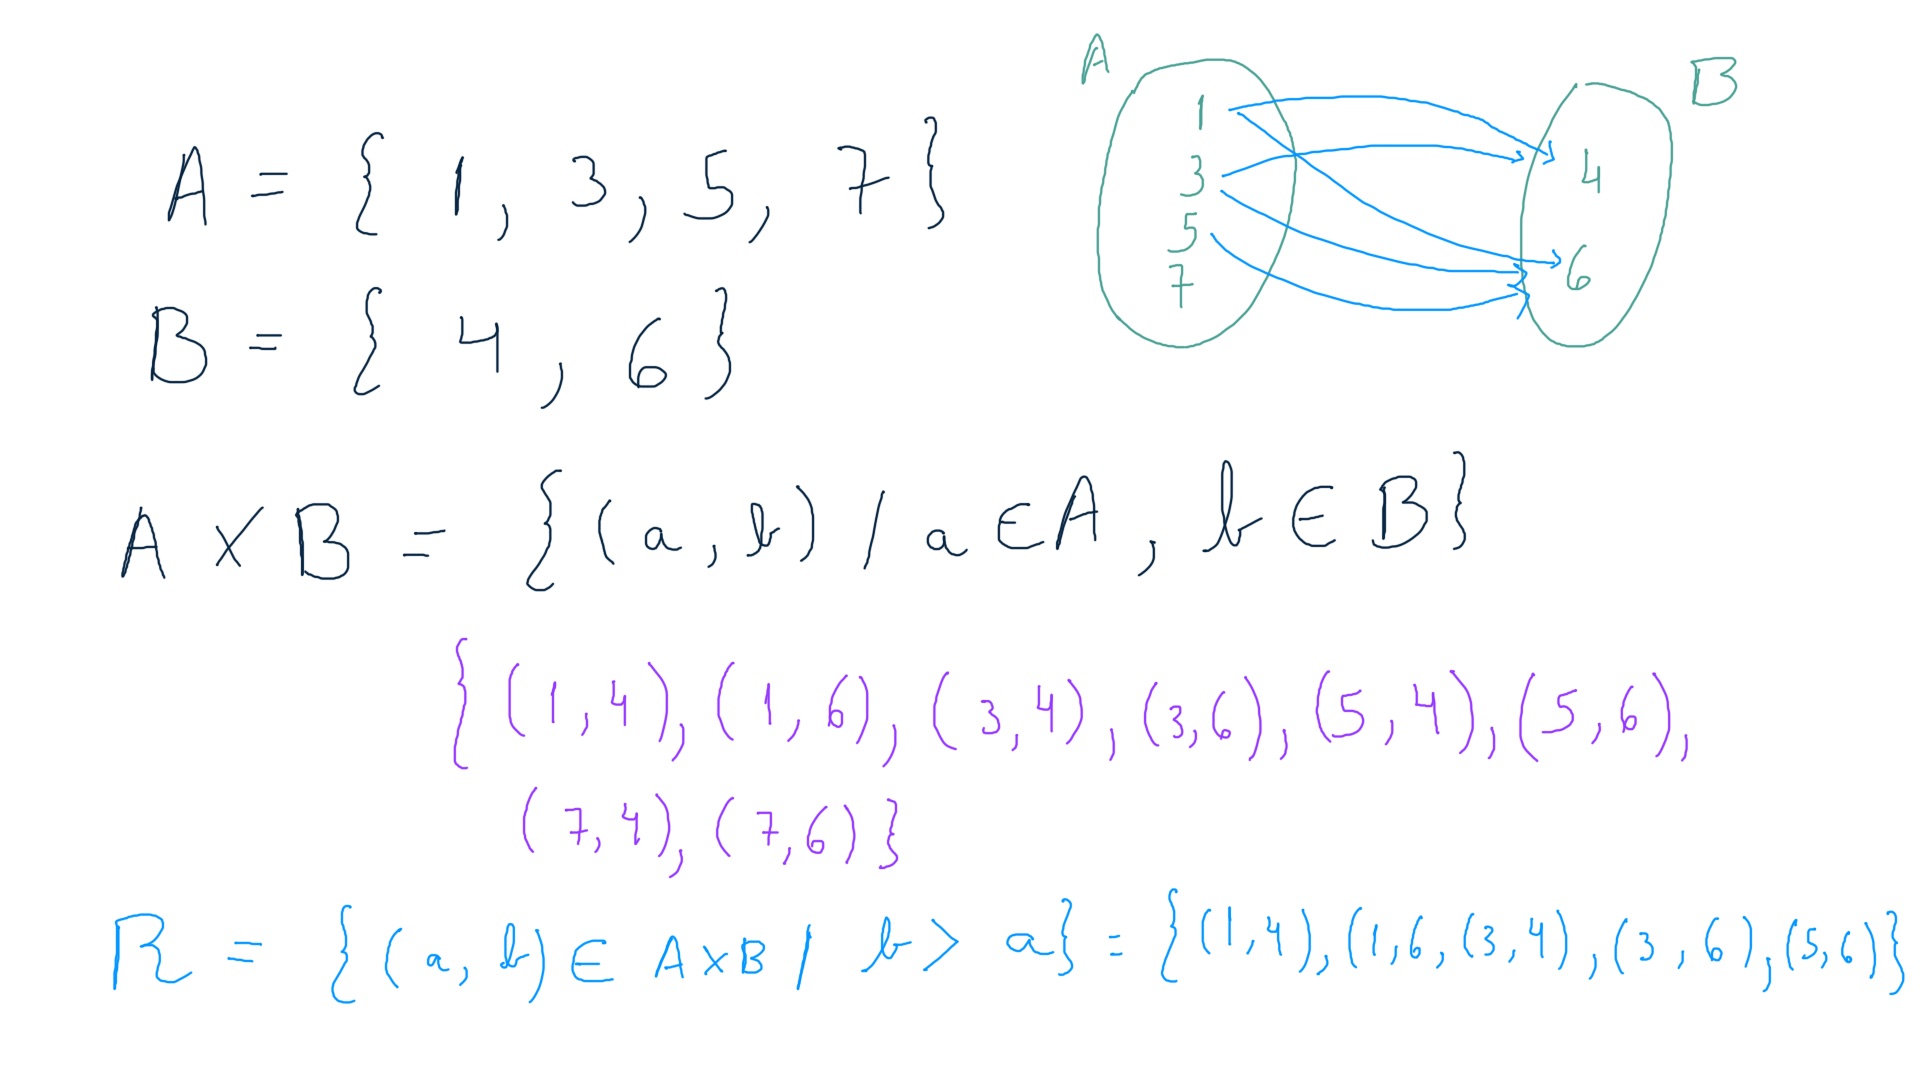 A = { 1, 3, 5, 7 }
B = { 4, 6 }
A
1
3
5
7
B
4
6
A × B = { (a, b) / a ∈ A, b ∈ B }
{ (1, 4), (1, 6), (3, 4), (3, 6), (5, 4), (5, 6),
(7, 4), (7, 6) }
R = { (a, b) ∈ A × B / b > a } = { (1, 4), (1, 6, (3, 4), (3, 6), (5, 6) }